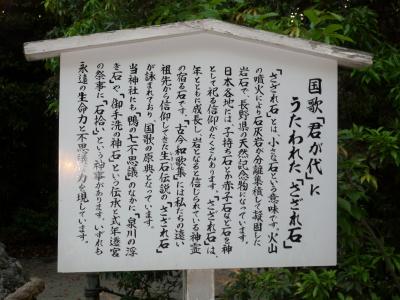 国歌「君が代」に
うたわれた、「さざれ石」
「さざれ石」とは、小さな石という意味です。火山
の噴火により石灰岩が分離集積して凝固した
岩石で、長野県の天然記念物になっています。
日本各地には、子持ち石とか赤子石など石を神
として祀る信仰がたくさんあります。「さざれ石」は、
年とともに成長し、岩となると信じられている神霊
の宿る石です。「古今和歌集」には私たちの遠い
祖先から信仰してきた生石伝説の「さざれ石」
が詠まれており、国歌の原典となっています。
当神社にも「鴨の七不思議」のなかに、「泉川の浮
き石」や、「御手洗の神石」という伝承と式年遷宮
の祭事に「石拾い」という神事があります。いずれも
永遠の生命力と不思議な力を現しています。